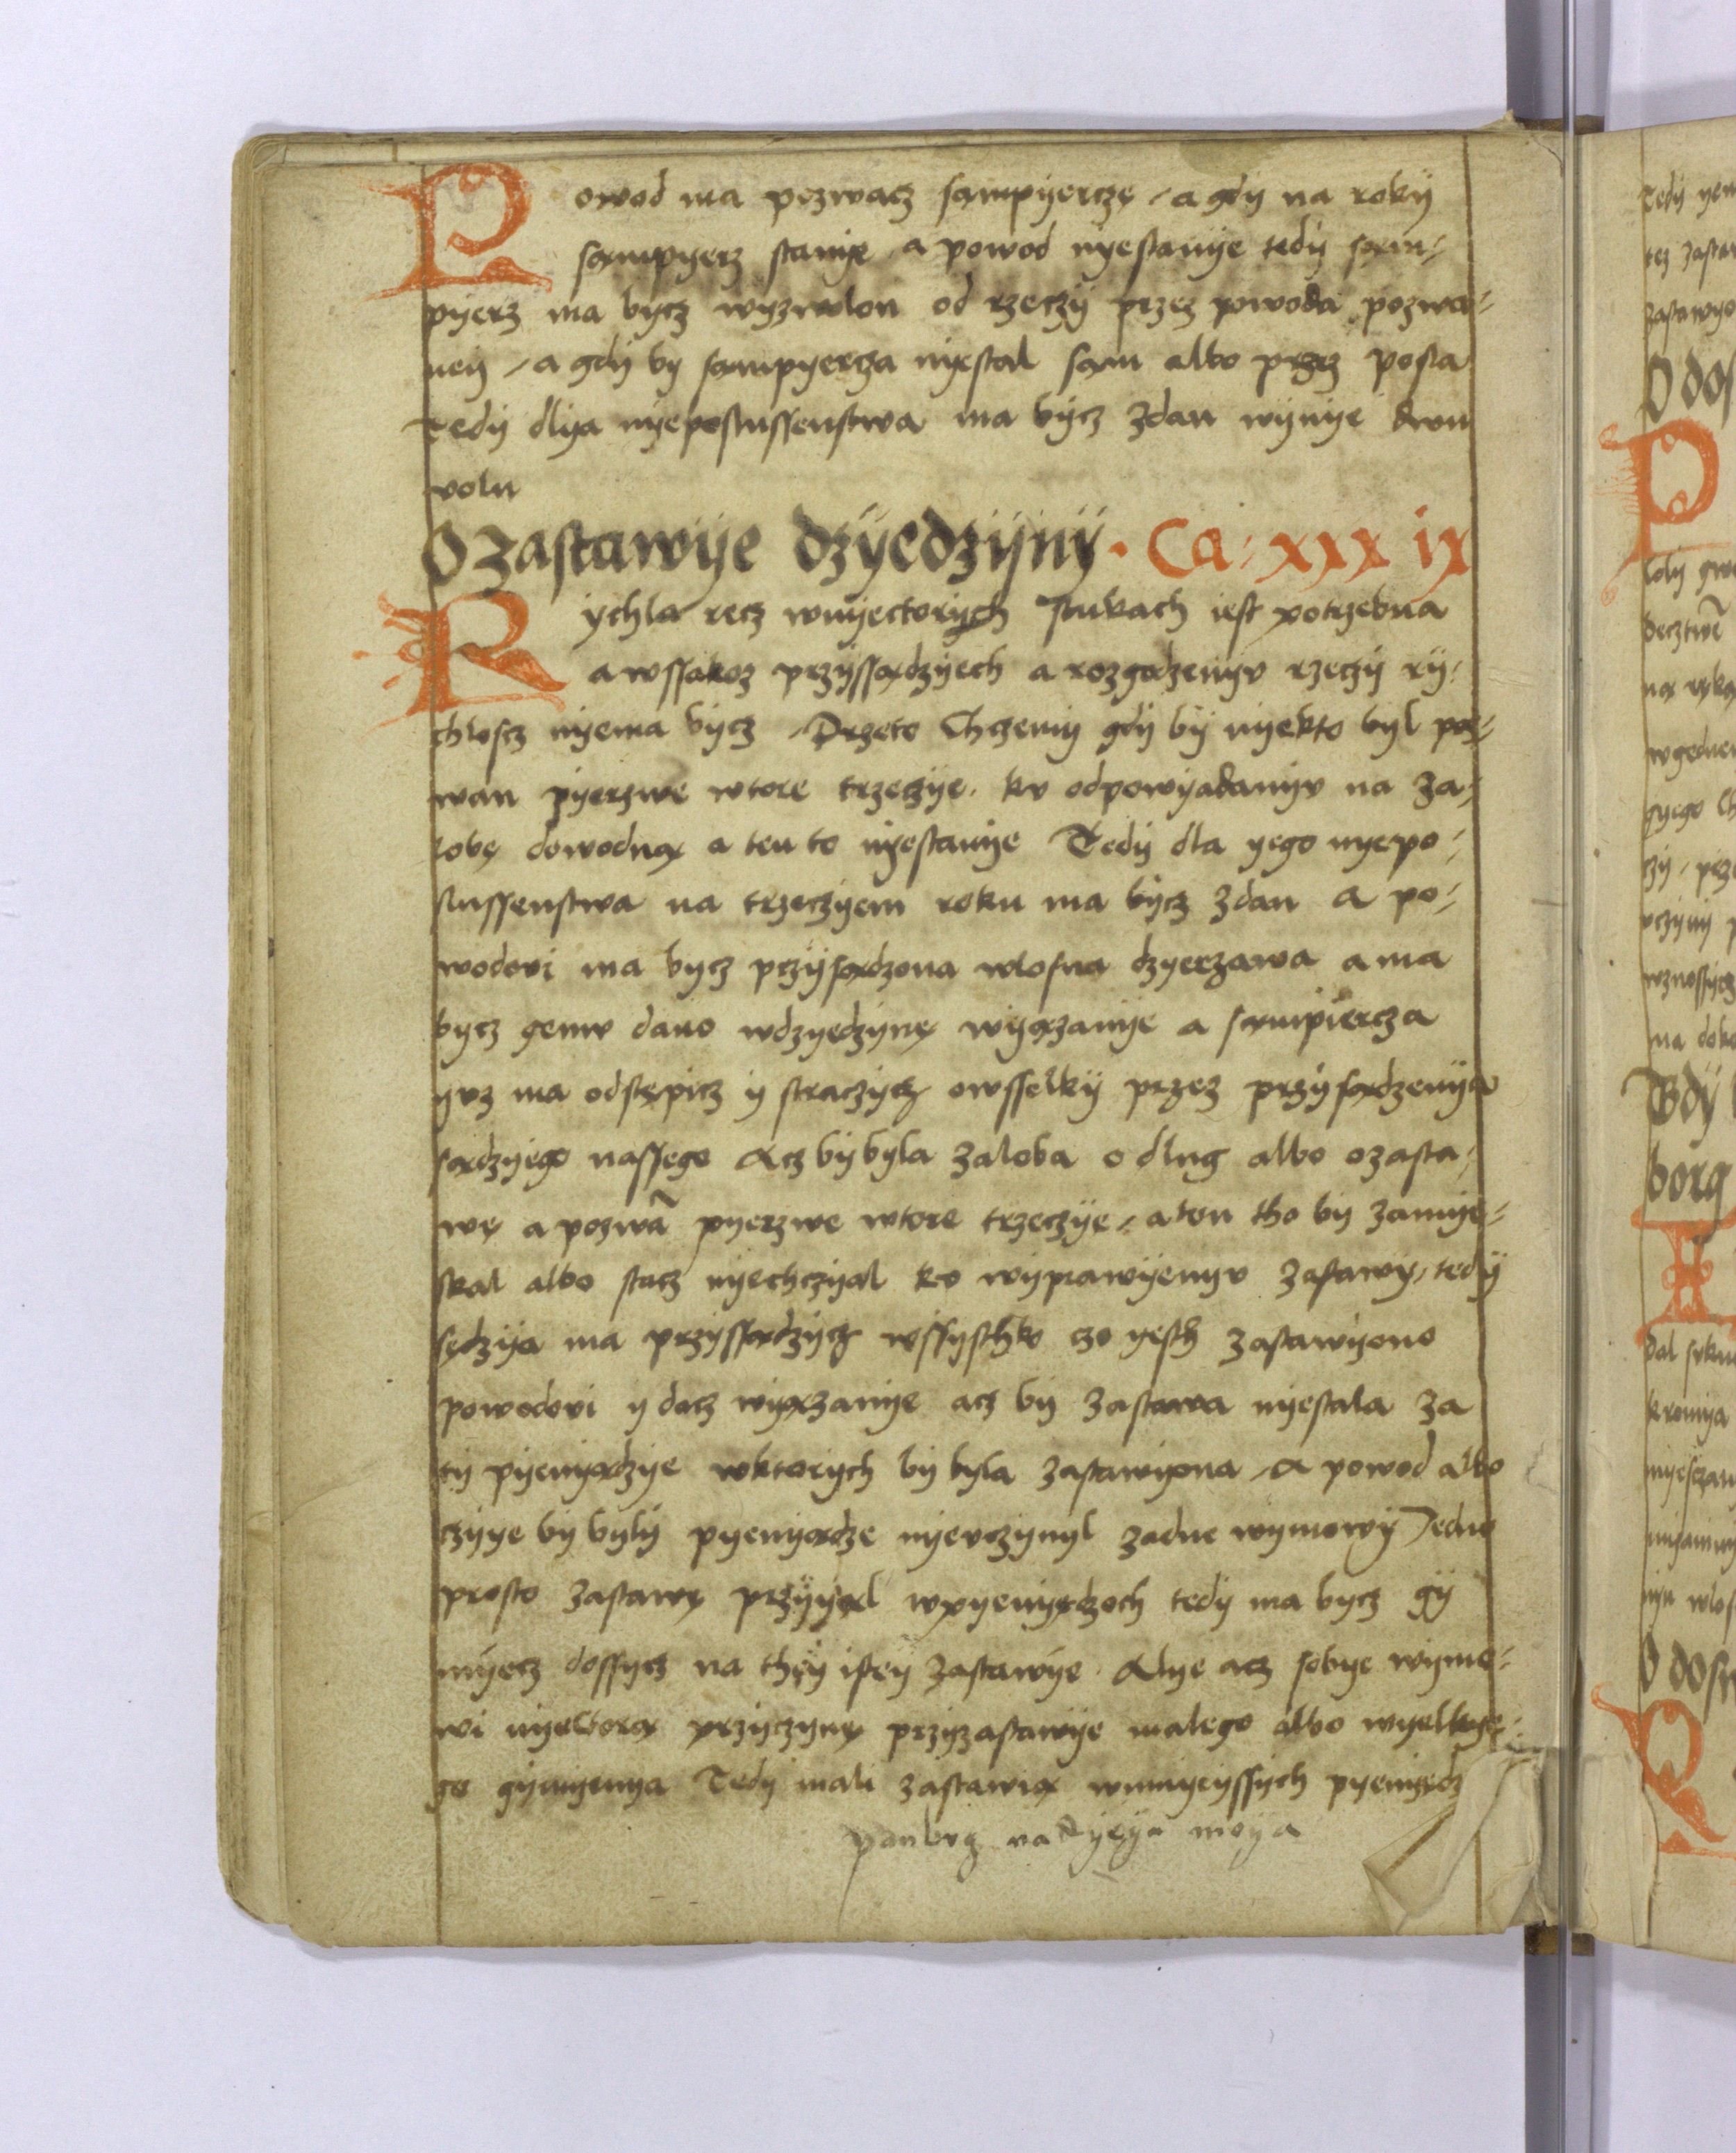 Powod ma pozwacz sąmpyerczę / a gdy na roky
sąmpyerz stanye a powod nyestanye tedy sąm-
pyerz ma bycz wyzwolon od rzeczy przez powoda pozwa-
ney / a gdy by sąmpyercza nyestal sąm albo przez posla
Tedy dlya nyeposlussenstwa ma bycz zdan wynye dwu
volu
O zastawye dzyedzyny · Ca: xxx ix
Rychla recz wnyectorych stukach iest potrzebna
a wssakoz przyssądzyech a rozgodzenyv rzeczy ry-
chloscz nyema bycz / Przeto Chczemy gdy by nyekto byl poz-
wan pyerzwe wtore trzeczye · kv odpowyadanyv na za-
lobę dowodną a ten to nyestanye Tedy dla yego nyepo-
slussenstwa na trzeczyem roku ma bycz zdan A po-
wodovi ma bycz przysądzona wlosna dzyerzawa a ma
bycz gemv dano wdzyedzynę wyązanye a sąmpiercza
yvz ma odstępicz y straczycz owsselky przez przysądzenya
sądzyego nassego Acz by byla zaloba o dlug albo o zasta-
wę a pozwã pyerzwe wtore trzeczye / a ten tho by zamye-
skal albo stacz nyechczyal kv wyprawyenyv zastawy, tedy
sędzya ma przyssądzycz wssysthko czo yesth zastawyono
powodovi y dacz wyązanye acz by zastawa nyestala za
ty pyenyądzye wktorych by byla zastawyona / A powod albo
czyye by byly pyenyądze nyevczynyl zadne wymowy Jedno
prosto zastawę przyyąl wpyenyądzoch tedy ma bycz gy
myecz dossycz na they istey zastawye · Alye acz sobye wymo-
wi nyektorą przyczynę przyzastawye malego albo wyelkye-
go gymyenya Tedy mali zastawią wmnyeyssych pyenyędz
panbvg nadzyeya moya